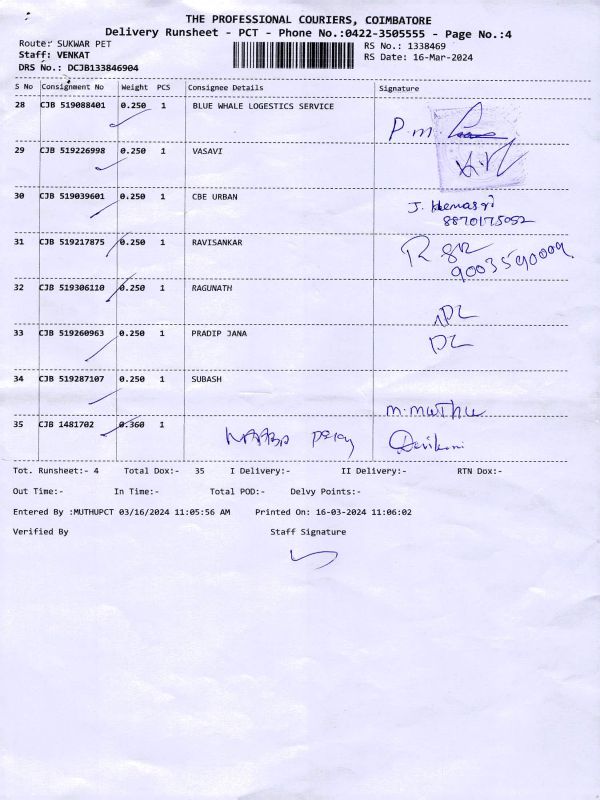 THE PROFESSIONAL COURIERS, COIMBATORE
Delivery Runsheet - PCT - Phone No.:0422-3505555 - Page No.:4
Route: SUKWAR PET
RS No.: 1338469
Staff: VENKAT
RS Date: 16-Mar-2024
DRS No.: DCJB133846904
S No Consignment No Weight PCS Consignee Details Signature
28 CJB 519088401 0.250 1 BLUE WHALE LOGESTICS SERVICE
P.m.
29 CJB 519226998 0.250 1 VASAVI
30 CJB 519039601 0.250 1 CBE URBAN
J. Hemasri
8870175092
31 CJB 519217875 0.250 1 RAVISANKAR
9003590009
32 CJB 519306110 0.250 1 RAGUNATH
33 CJB 519260963 0.250 1 PRADIP JANA
34 CJB 519287107 0.250 1 SUBASH
m.muthu
35 CJB 1481702 0.360 1
Tot. Runsheet:- 4 Total Dox:- 35 I Delivery:- II Delivery:- RTN Dox:-
Out Time:- In Time:- Total POD:- Delvy Points:-
Entered By :MUTHUPCT 03/16/2024 11:05:56 AM Printed On: 16-03-2024 11:06:02
Verified By Staff Signature